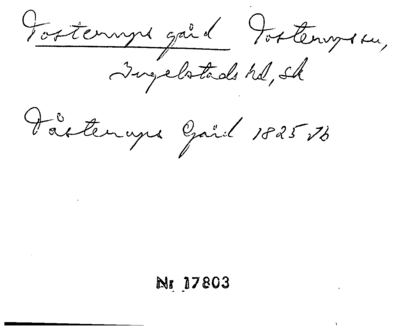 Tosterups gård Tosterups sn,
Ingelstads hd, Sk
Tåsterups Gård 1825
Nr 17803